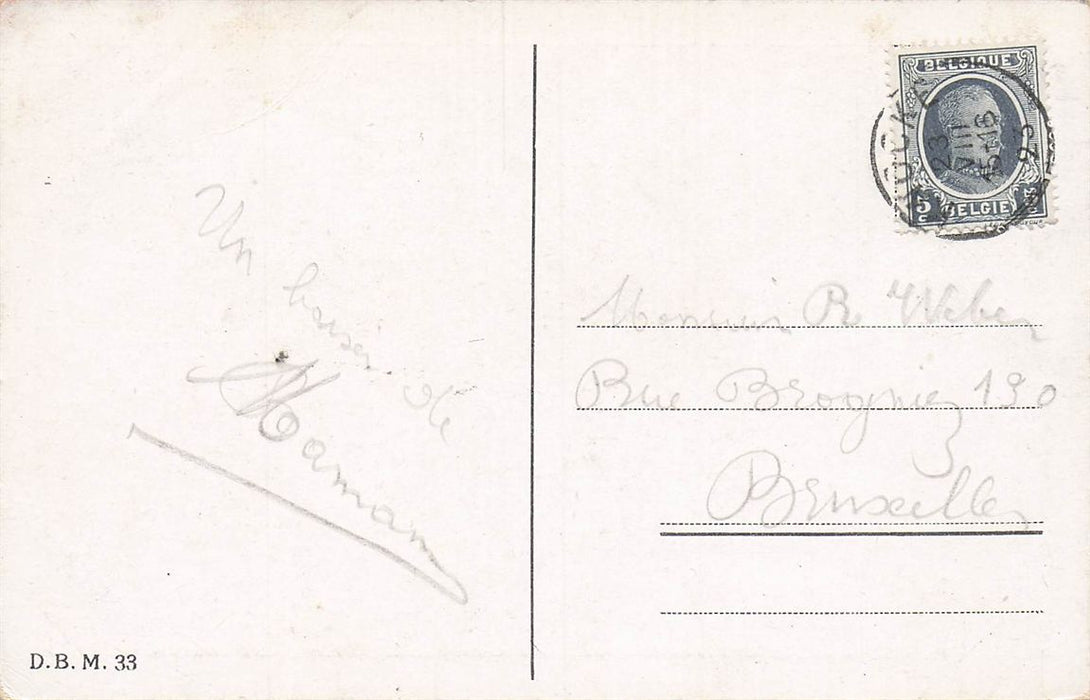 Un baiser de
Maman
BELGIQUE
23
VIII
15-16
23
5
BELGIE
Monsieur R Weber
Rue Brogniez 190
Bruxelles
D.B.M. 33